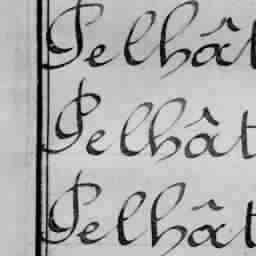 Pelhât
Pelhât
Pelhât